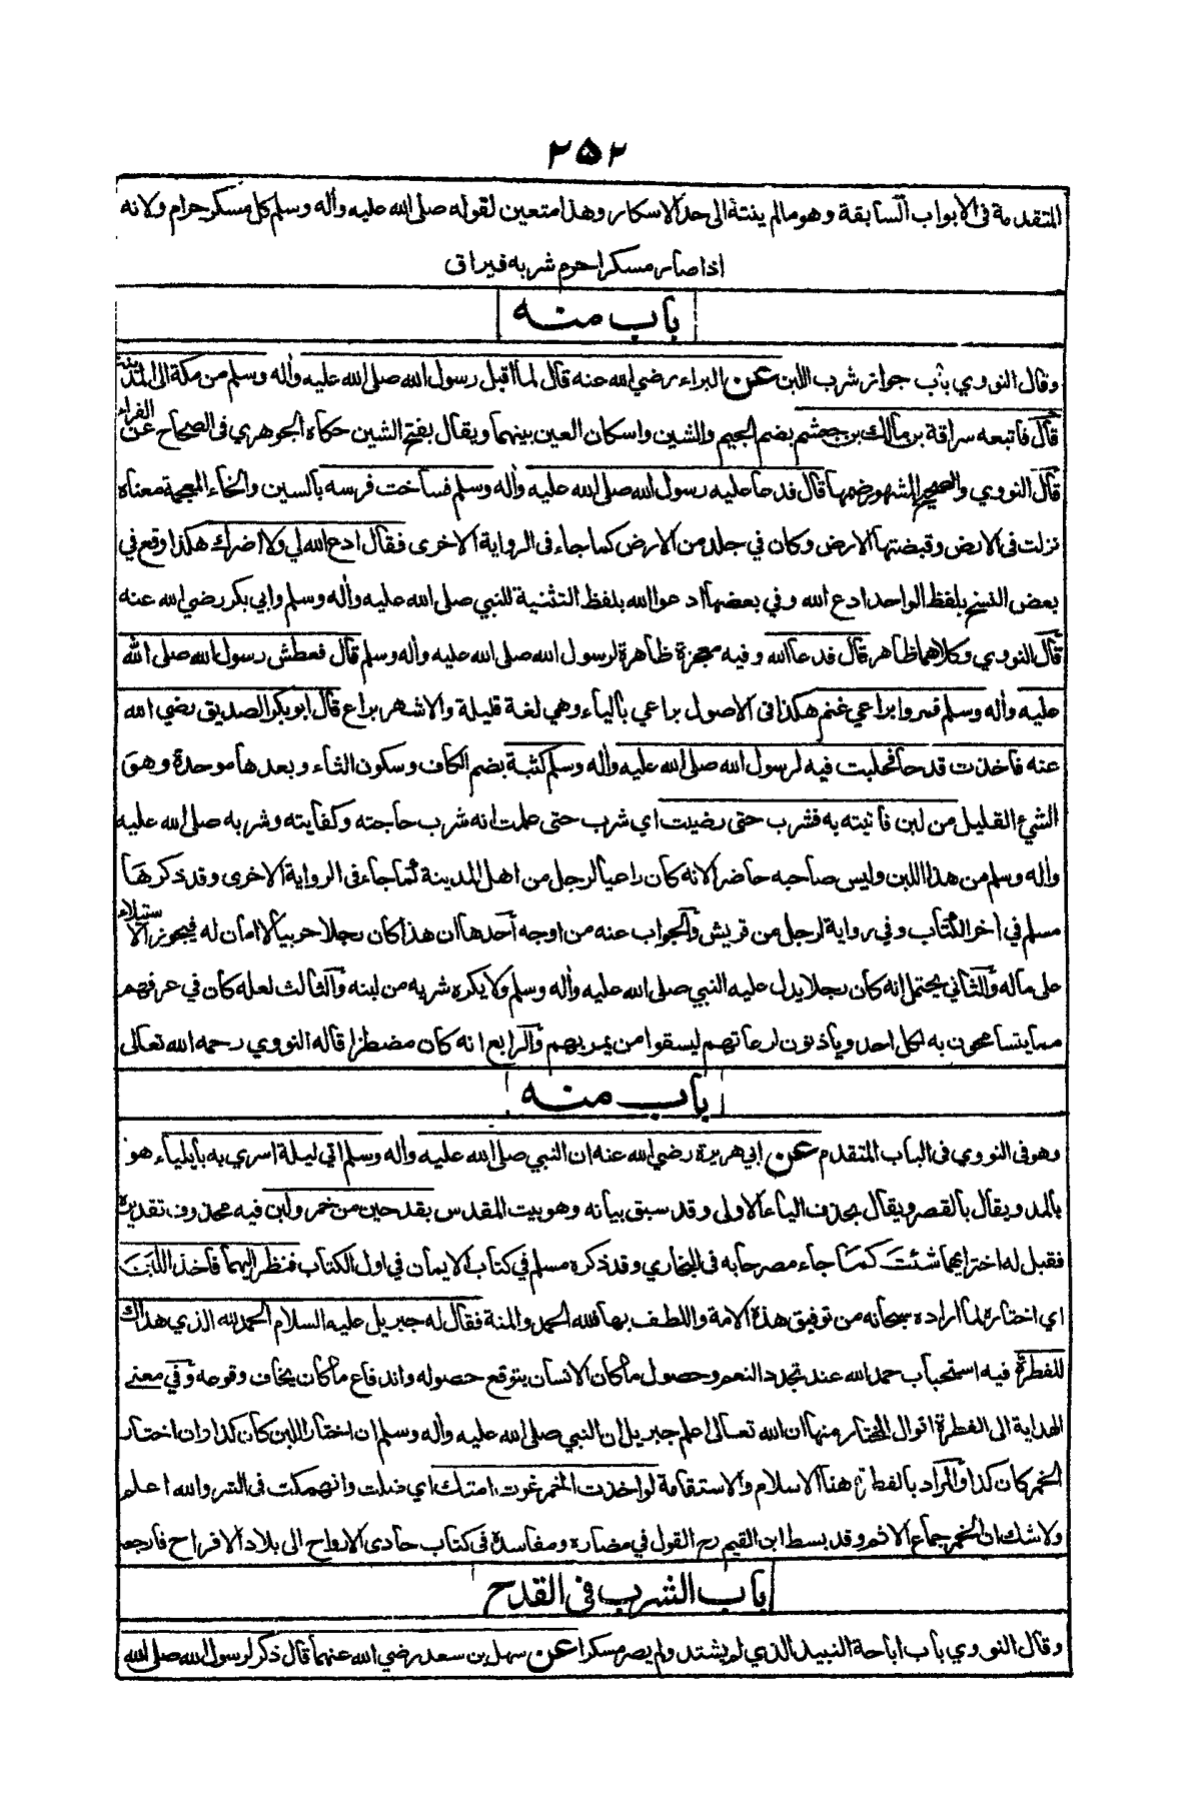 ٢٥٢
المتقدمة فى الابواب السابقة وهو مالم ينته الى حد الاسكار وهذا متعين لقوله صلى الله عليه وأله وسلم كل مسكر حرام ولانه
اذا صار مسكرا حرم شربه فيراق
باب منه
وقال النووي باب جواز شرب اللبن عن البراء رضي الله عنه قال لما اقبل رسول الله صلى الله عليه وأله وسلم من مكة الى المدينة
قال فاتبعه سراقة بن مالك بن جعشم بضم الجيم والشين واسكان العين بينهما ويقال بفتح الشين حكاه الجوهري فى الصحاح عن الفراء
قال النووي والصحيح المشهور ضمها قال فدعا عليه رسول الله صلى الله عليه وأله وسلم فساخت فرسه بالسين والخاء المعجمة معناه
نزلت فى الارض وقبضتها الارض وكان في جلد من الارض كما جاء فى الرواية الاخرى فقال ادع الله لي ولا اضرك هكذا وقع في
بعض النسخ بلفظ الواحد ادع الله وفي بعضها ادعوا الله بلفظ التثنية للنبي صلى الله عليه وأله وسلم وابي بكر رضي الله عنه
قال النووي وكلاهما ظاهر قال فدعا الله وفيه معجزة ظاهرة لرسول الله صلى الله عليه وأله وسلم قال فعطش رسول الله صلى الله
عليه وأله وسلم فمروا براعي غنم هكذا فى الاصول براعي بالياء وهي لغة قليلة والاشهر براع قال ابو بكر الصديق رضي الله
عنه فاخذت قدحا فحلبت فيه لرسول الله صلى الله عليه وأله وسلم كثبة بضم الكاف وسكون الثاء وبعدها موحدة وهو
الشيء القليل من لبن فاتيته به فشرب حتى رضيت اي شرب حتى علمت انه شرب حاجته وكفايته وشربه صلى الله عليه
وأله وسلم من هذا اللبن وليس صاحبه حاضر الانه كان راعيا لرجل من اهل المدينة كما جاء فى الرواية الاخرى وقد ذكرها
مسلم في اخر الكتاب وفي رواية لرجل من قريش والجواب عنه من اوجه احدها ان هذا كان رجلا حربيا لا امان له فيجوز الاستيلاء
على ماله والثاني يحتمل انه كان رجلا يدل عليه النبي صلى الله عليه وأله وسلم ولا يكره شربه من لبنه والثالث لعله كان في عرفهم
مما يتسامحون به لكل احد ويأذنون لرعاتهم ليسقوا من يمر بهم والرابع انه كان مضطرا قاله النووي رحمه الله تعالى
باب منه
وهو فى النووي فى الباب المتقدم عن ابي هريرة رضي الله عنه ان النبي صلى الله عليه وأله وسلم اتي ليلة اسري به بايلياء هو
بالمد ويقال بالقصر ويقال بحذف الياء الاولى وقد سبق بيانه وهو بيت المقدس بقدحين من خمر ولبن فيه محذوف تقديره
فقيل له اختر ايهما شئت كما جاء مصرحا به فى البخاري وقد ذكره مسلم في كتاب الايمان في اول الكتاب فنظر اليهما فاخذ اللبن
اي اختاره لما اراده سبحانه من توفيق هذه الامة واللطف بها فلله الحمد والمنة فقال له جبريل عليه السلام الحمد لله الذي هداك
للفطرة فيه استحباب حمد الله عند تجدد النعم وحصول ما كان الانسان يتوقع حصوله واندفاع ما كان يخاف وقوعه وفي معنى
الهداية الى الفطرة اقوال المختار منها ان الله تعالى اعلم جبريل ان النبي صلى الله عليه وأله وسلم ان اختار اللبن كان كذا وان اختار
الخمر كان كذا والمراد بالفطرة هنا الاسلام والاستقامة لو اخذت الخمر غوت امتك اي ضلت وانهمكت فى الشر والله اعلم
ولا شك ان الخمر جماع الاثم وقد بسط ابن القيم رح القول في مضاره ومفاسده فى كتاب حادى الارواح الى بلاد الافراح فارجع
باب الشرب فى القدح
وقال النووي باب اباحة النبيذ الذي لم يشتد ولم يصر مسكرا عن سهل بن سعد رضي الله عنهما قال ذكر لرسول الله صلى الله